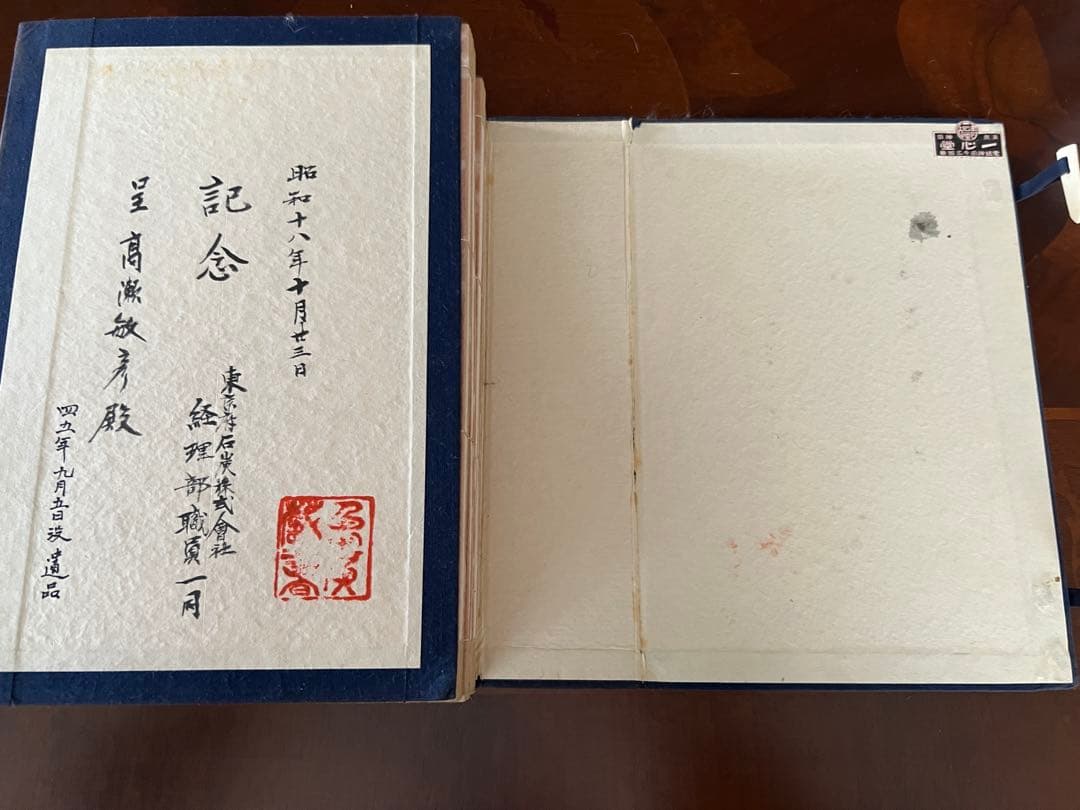 昭和十八年十月廿三日
記念
東京石炭株式會社
経理部職員一同
呈 髙瀬敏彦殿
四五年九月五日没 遺品
一心堂